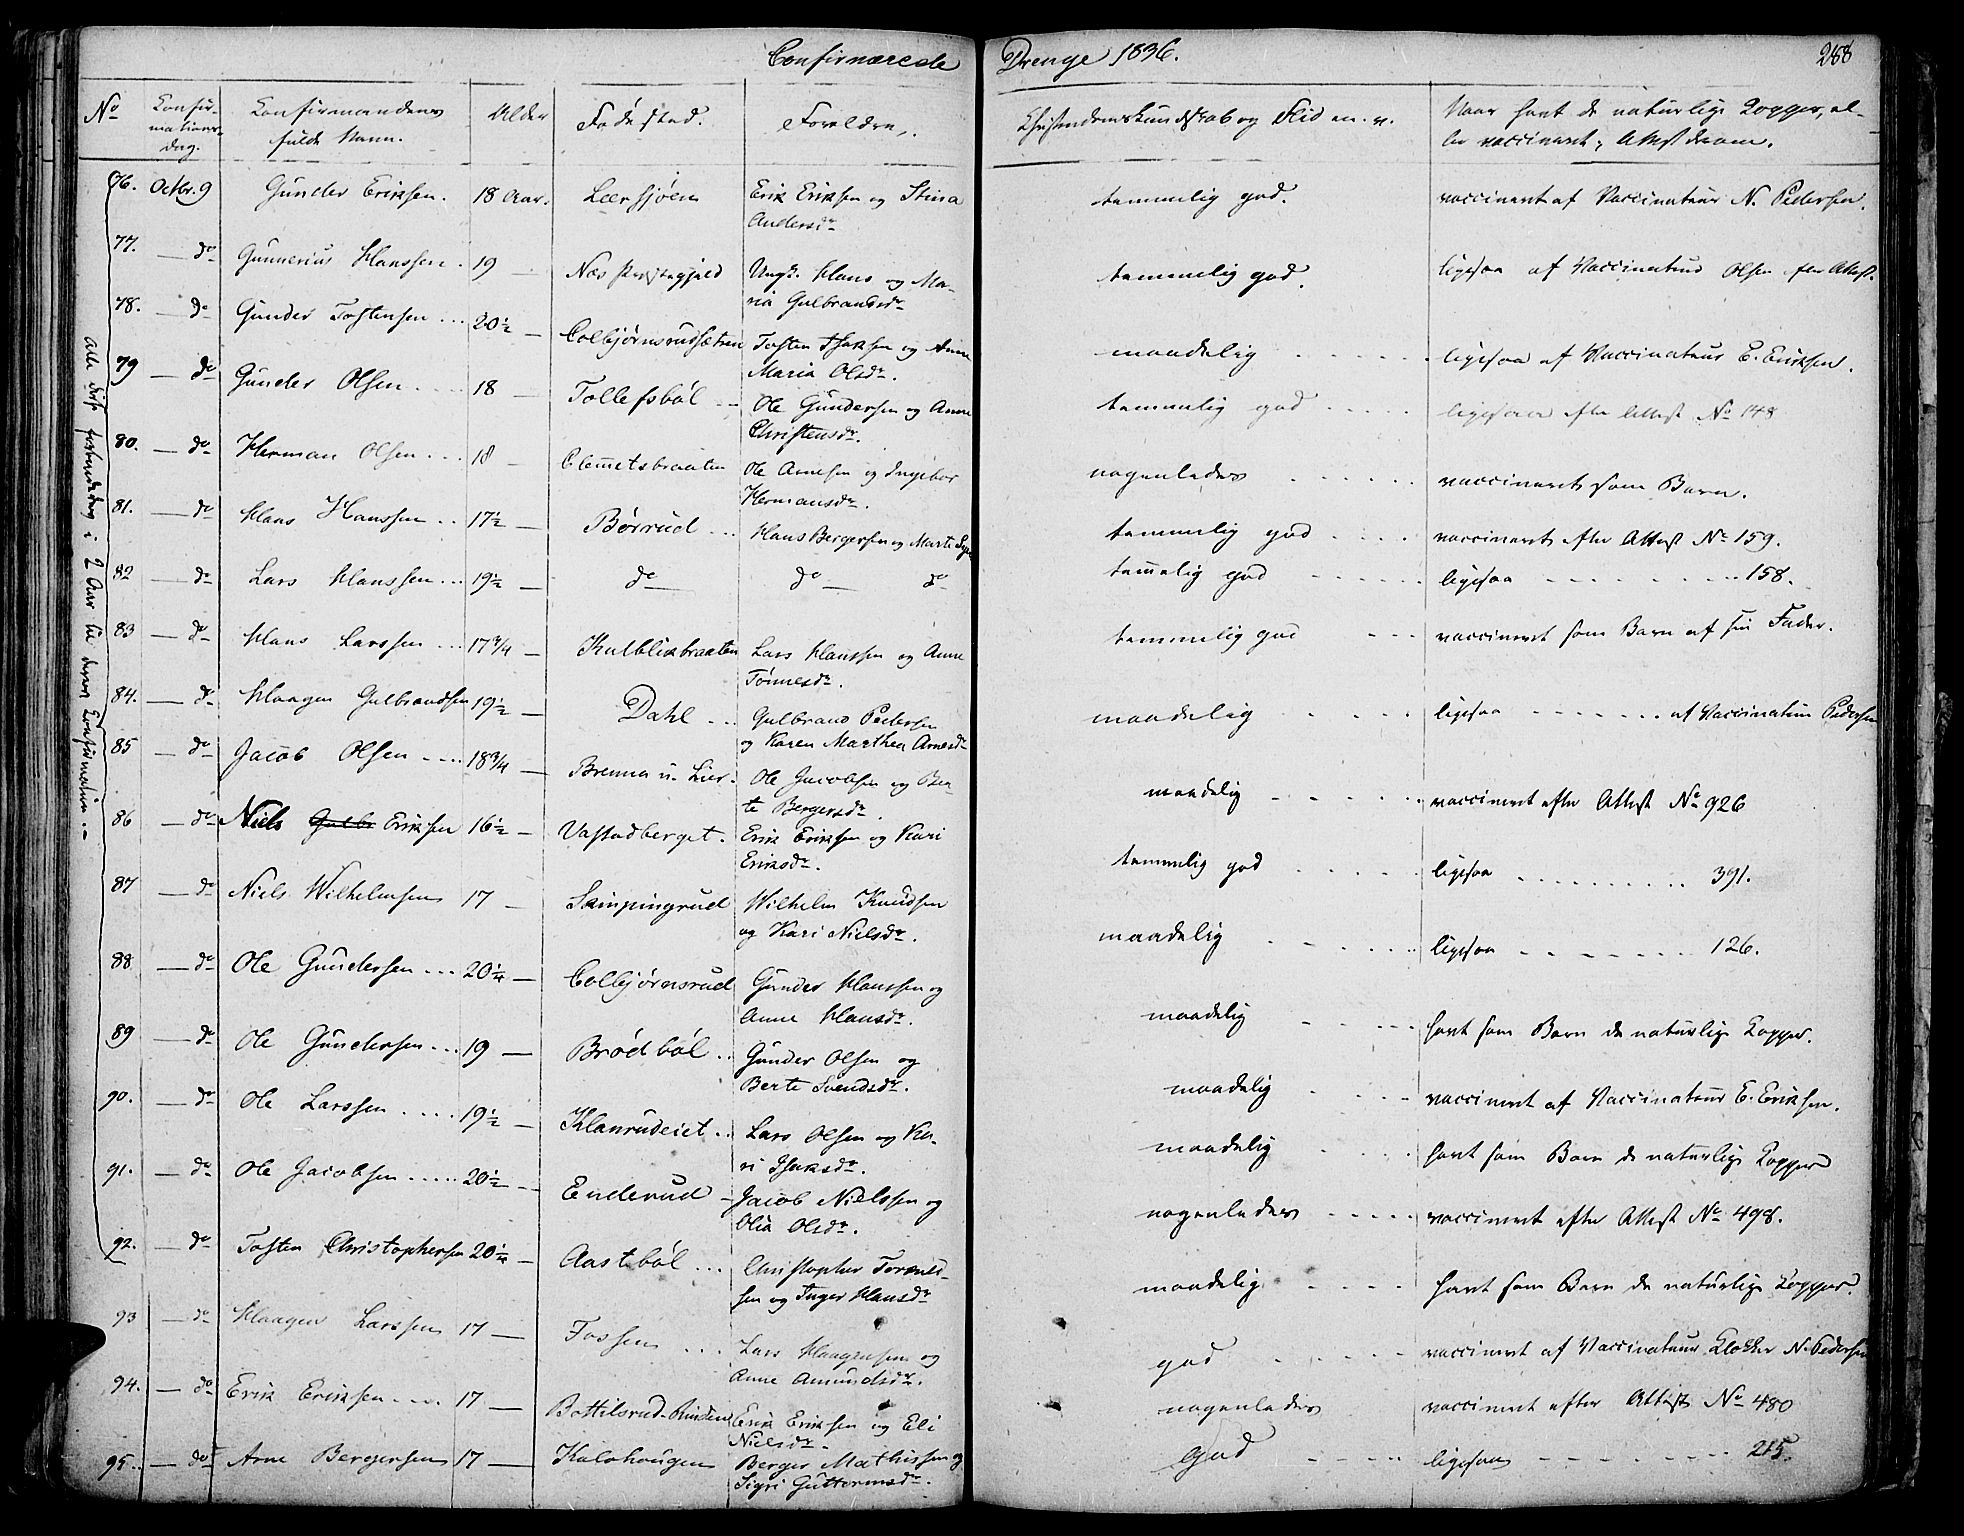 Confirmerede Drenge 1836. 288
No Konfirmations Dag. Konfirmandens fulde Navn. Alder Fødested. Forældre. Christendomskundskab og Flid m. v. Naar havt de naturlige Kopper, el-
ler vaccineret, Attest derom.
76. Octbr. 9 Gunder Eriksen. 18 Aar. Leersjøen Erik Eriksen og Stina temmelig god. vaccineret af Vaccinateur N. Pedersen.
Andersdr
77. — do Gunnerius Hanssen. 19 — Næs Præstegjeld Ungk. Hans og Ma- temmelig god. ligesaa af Vaccinateur Olsen efter Attest.
ria Gulbrandsdr
78. — do Gunder Tostensen ... 20½ — Colbjørnsrudsætren Tosten Isaksen og Anne maadelig ligesaa af Vaccinateur E. Eriksen.
Maria Olsdr.
79 — do Gunder Olsen. 18 — Tollefsbøl Ole Gundersen og Anne temmelig god ligesaa efter Attest No 148
Christensdr.
80. — do Herman Olsen ... 18 — Clemetsbraaten Ole Arnesen og Ingebor nogenledes vaccineret som Barn.
Hermansdr.
81. — do Hans Hanssen .. 17½ — Børrud ... Hans Bergersen og Marte temmelig god vaccineret efter Attest No 159.
82 — do Lars Hanssen ... 19½ — do do — do temmelig god ligesaa 158.
83 — do Hans Larssen ... 17¾ — Kulblikbraaten Lars Hanssen og Anne temmelig god vaccineret som Barn af sin Fader.
Tønnesdr.
84. — do Haagen Gulbrandsen 19½ — Dahl ... Gulbrand Pedersen maadelig ligesaa af Vaccinateur Pedersen
og Karen Marthea Arnesdr
85 — do Jacob Olsen .... 18¾ — Brenna u. Lier. Ole Jacobsen og Ber- maadelig vaccineret efter Attest No 926
te Bergersdr.
86 — do Niels Gulbr Eriksen 16½ — Vastadberget. Erik Eriksen og Kari temmelig god ligesaa 391.
Eriksdr.
87 — do Niels Wilhelmsen 17 — Sæmpingrud Wilhelm Knudsen maadelig ligesaa 126.
og Kari Nielsdr.
88 — do Ole Gundersen ... 20¼ — Colbjørnsrud Gunder Hanssen og maadelig havt som Barn de naturlige Kopper.
Anne Hansdr.
89 — do Ole Gundersen ... 19 — Brødbøl .. Gunder Olsen og maadelig vaccineret af Vaccinateur E. Eriksen.
Berte Svendsdr.
90. — do Ole Larssen .... 19½ — Klanrudeiet .. Lars Olsen og Ka- maadelig havt som Barn de naturlige Kopper
ri Isaksdr.
91. — do Ole Jacobsen ..... 20½ — Enderud Jacob Nielssen og nogenledes vaccineret efter Attest No 498.
Olia Olsdr.
92. — do Tosten Christophersen 20¼ — Aastebøl ... Christopher maadelig havt som Barn de naturlige Kopper.
sen og Inger Hansdr
93 — do Haagen Larssen 17 — Fossen ... Lars Haagensen og god vaccineret af Vaccinateur Klokker N. Pedersen
Anne Amundsdr.
94. — do Erik Eriksen 17 — Bottilsrud. Erik Eriksen og Eli nogenledes vaccineret efter Attest No 480
Nielsdr.
95. — do Arne Bergersen 17 — Kalahougen Berger Mathissen og god ligesaa 215.
Sigri Guttormsdr.
alle disse forberedelse i 2 Aar til deres Confirmation.